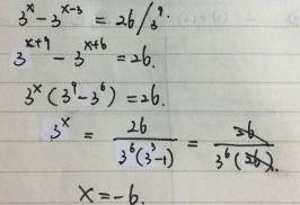 3^x - 3^{x-3} = 26/3^9.
3^{x+9} - 3^{x+6} = 26.
3^x (3^9 - 3^6) = 26.
3^x = \frac{26}{3^6(3^3-1)} = \frac{26}{3^6(26)}.
x = -6.